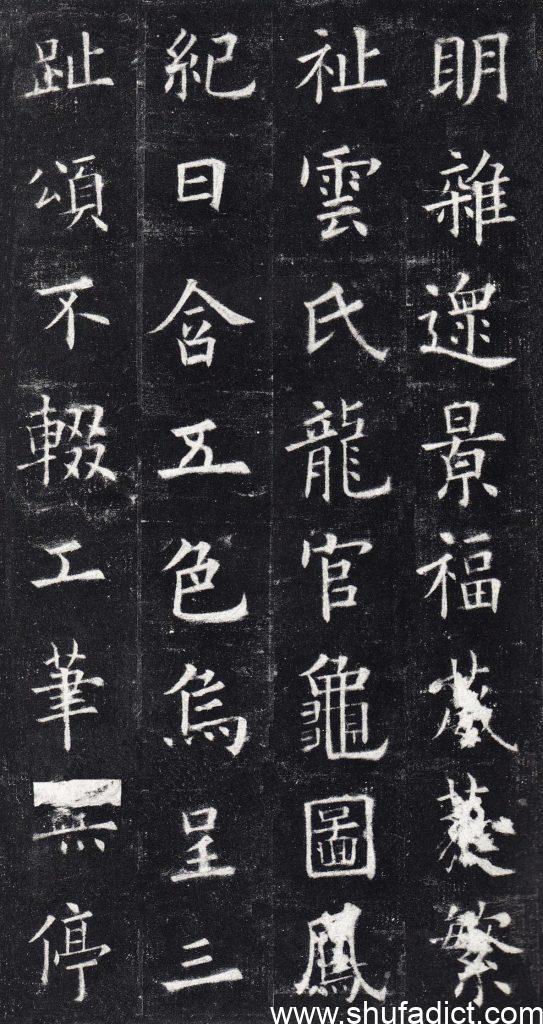 明雜遝景福葳蕤繁
祉雲氏龍官龜圖鳳
紀日含五色烏呈三
趾頌不輟工筆無停
www.shufadict.com